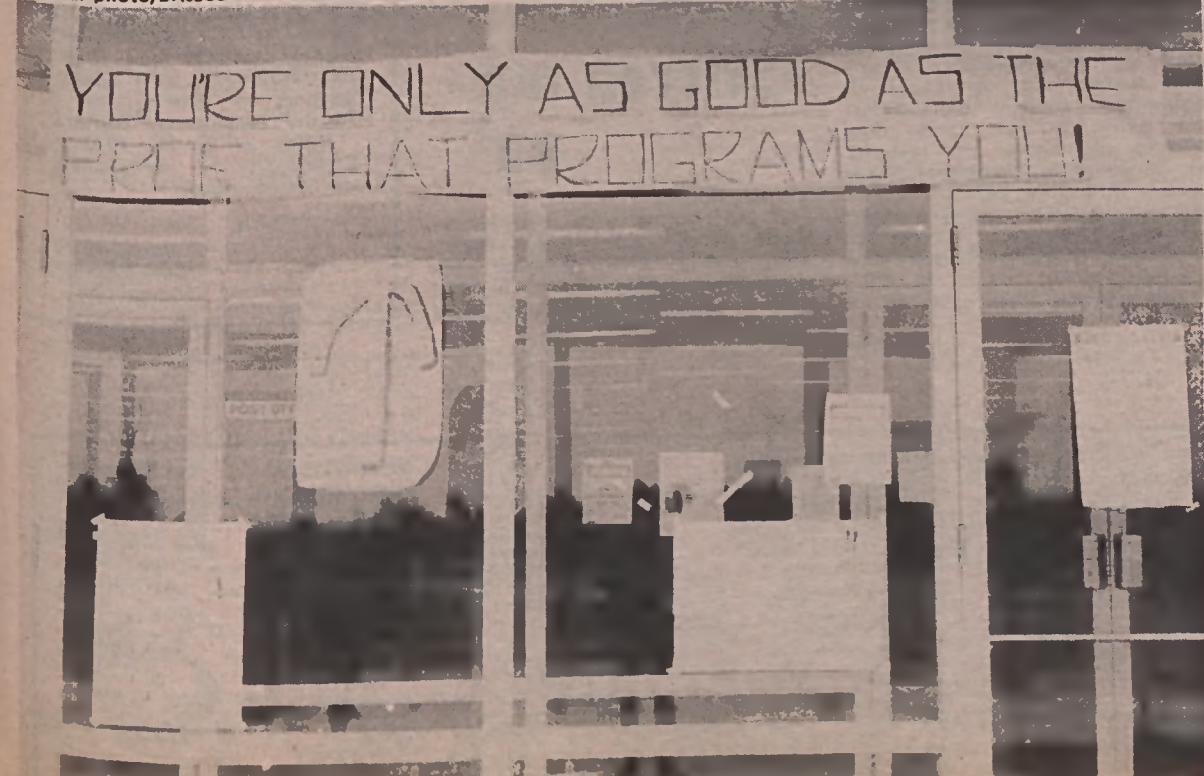 YOU'RE ONLY AS GOOD AS THE
PROF THAT PROGRAMS YOU!
POST OFF